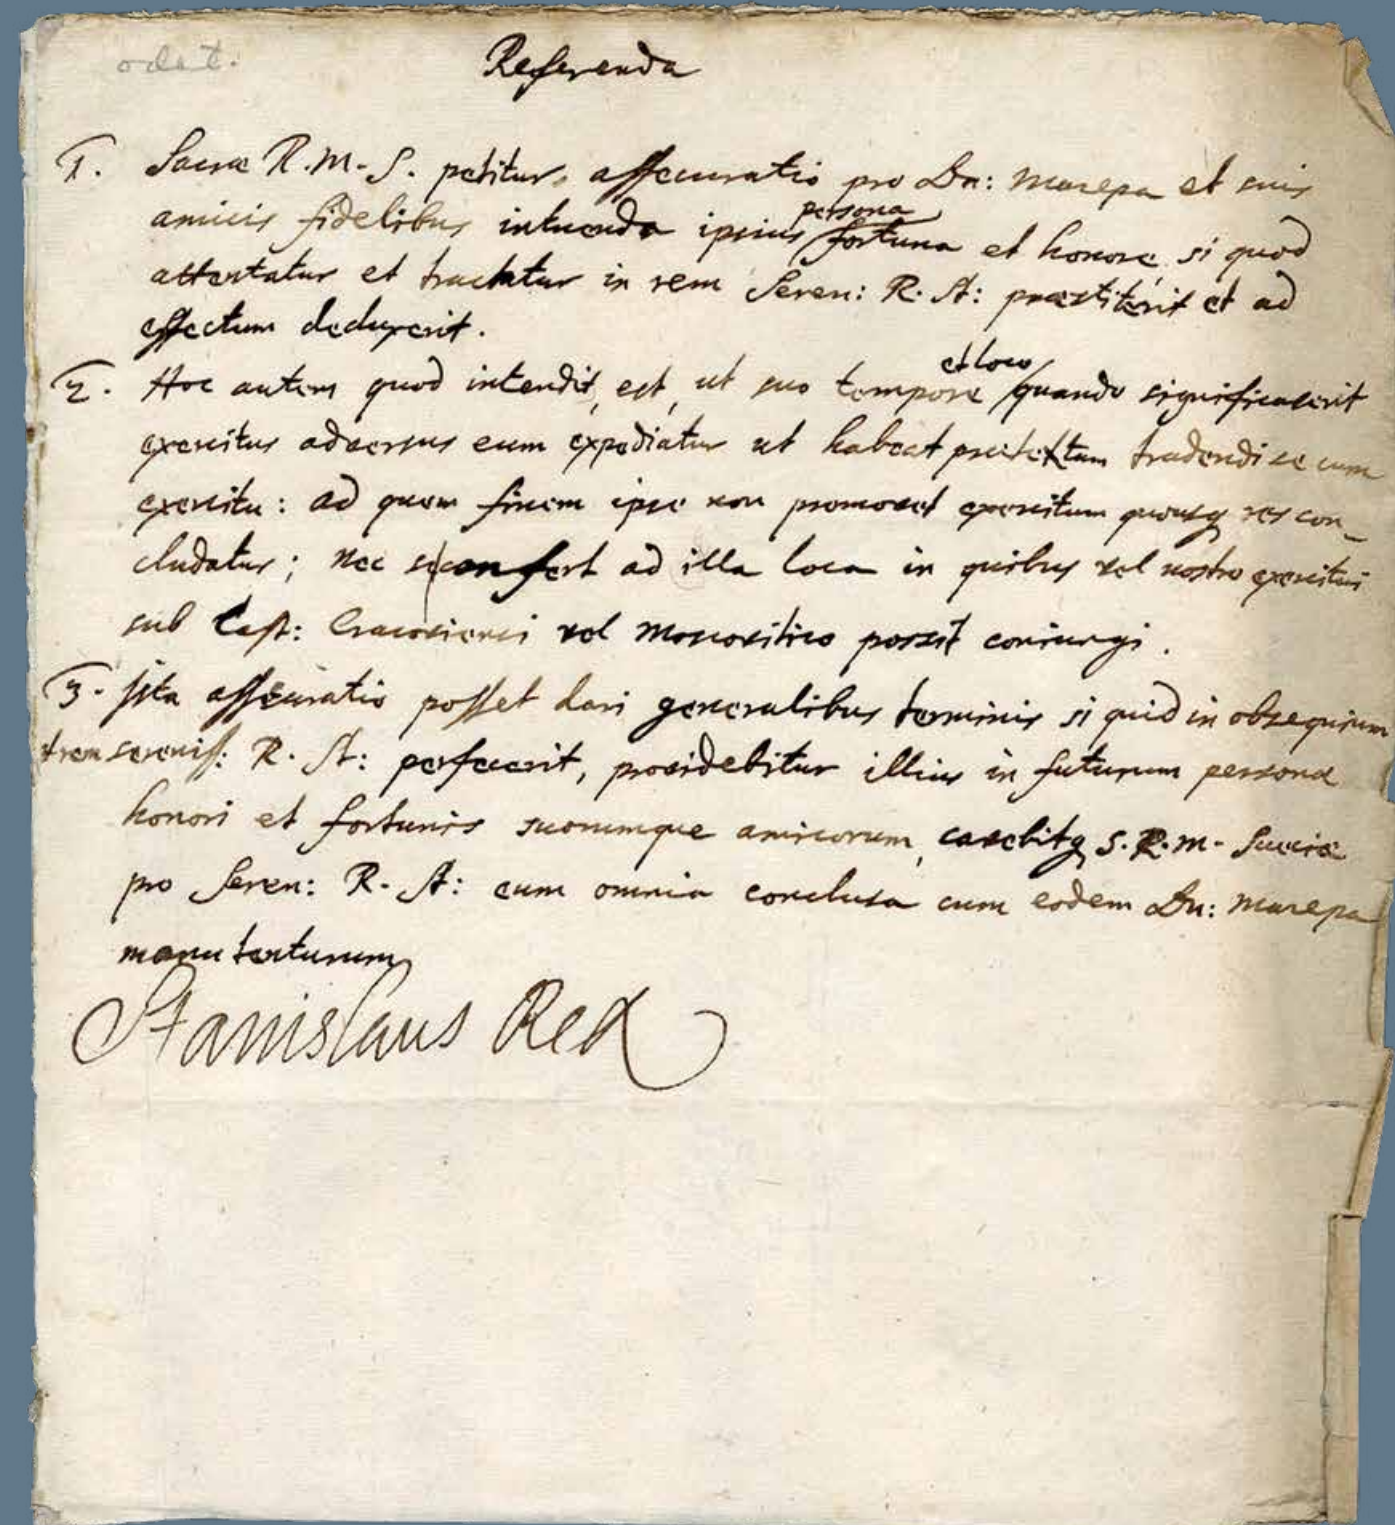 odat.
Referenda
1. Sacræ R. M. S. petitur assecuratio pro Dn: Mazepa et suis
amicis fidelibus intuenda ipsius persona fortuna et honore, si quod
attentatur et tractatur in rem Seren: R. St: præstiterit et ad
effectum deduxerit.
2. Hoc autem quod intendit, est, ut suo tempore et loco quando significaverit
exercitus adversus eum expediatur ut habeat pretextum tradendi se cum
exercitu: ad quem finem ipse non promovet exercitum quousq res con-
cludatur; nec se confert ad illa loca in quibus vel nostro exercitui
sub Cast: Cracoviensi vel Moscovitico possit coniungi.
3. Ista assecuratio posset dari generalibus terminis si quid in obsequium
et rem sereniss: R. St: perfecerit, providebitur illius in futurum personæ
honori et fortunis suorumque amicorum, cavebitq S. R. M. Sueciæ
pro Seren: R. St: eum omnia conclusa cum eodem Dn: Mazepa
manutenturum
Stanislaus Rex